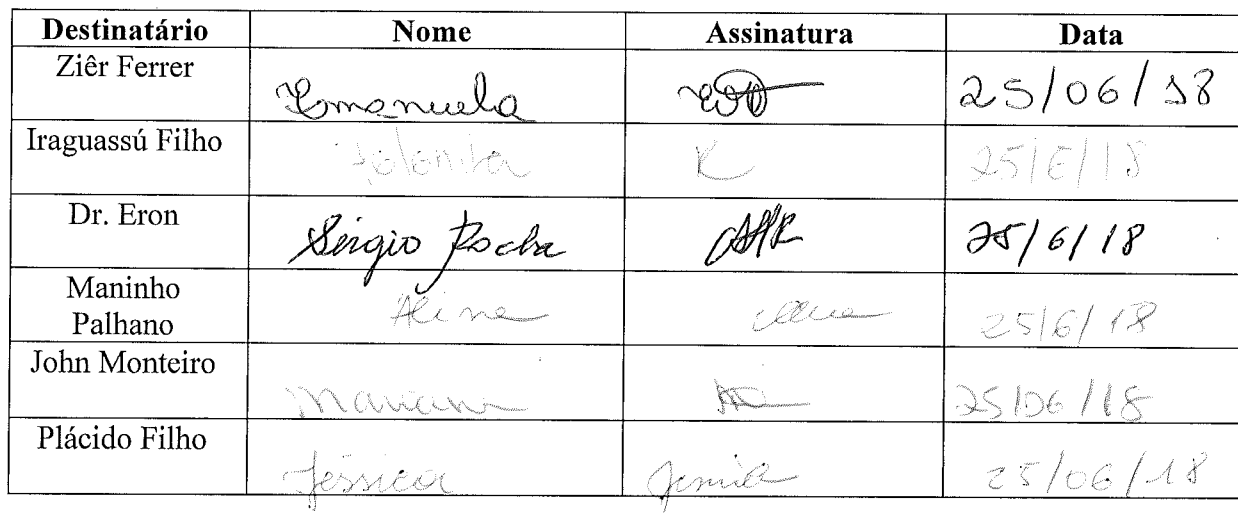 Destinatário Nome Assinatura Data
Ziêr Ferrer Emanuela 25/06/18
Iraguassú Filho 25/6/18
Dr. Eron Sérgio Rocha 25/6/18
Maninho Palhano Aline Aline 25/6/18
John Monteiro Mariana 25/06/18
Plácido Filho Jéssica 25/06/18